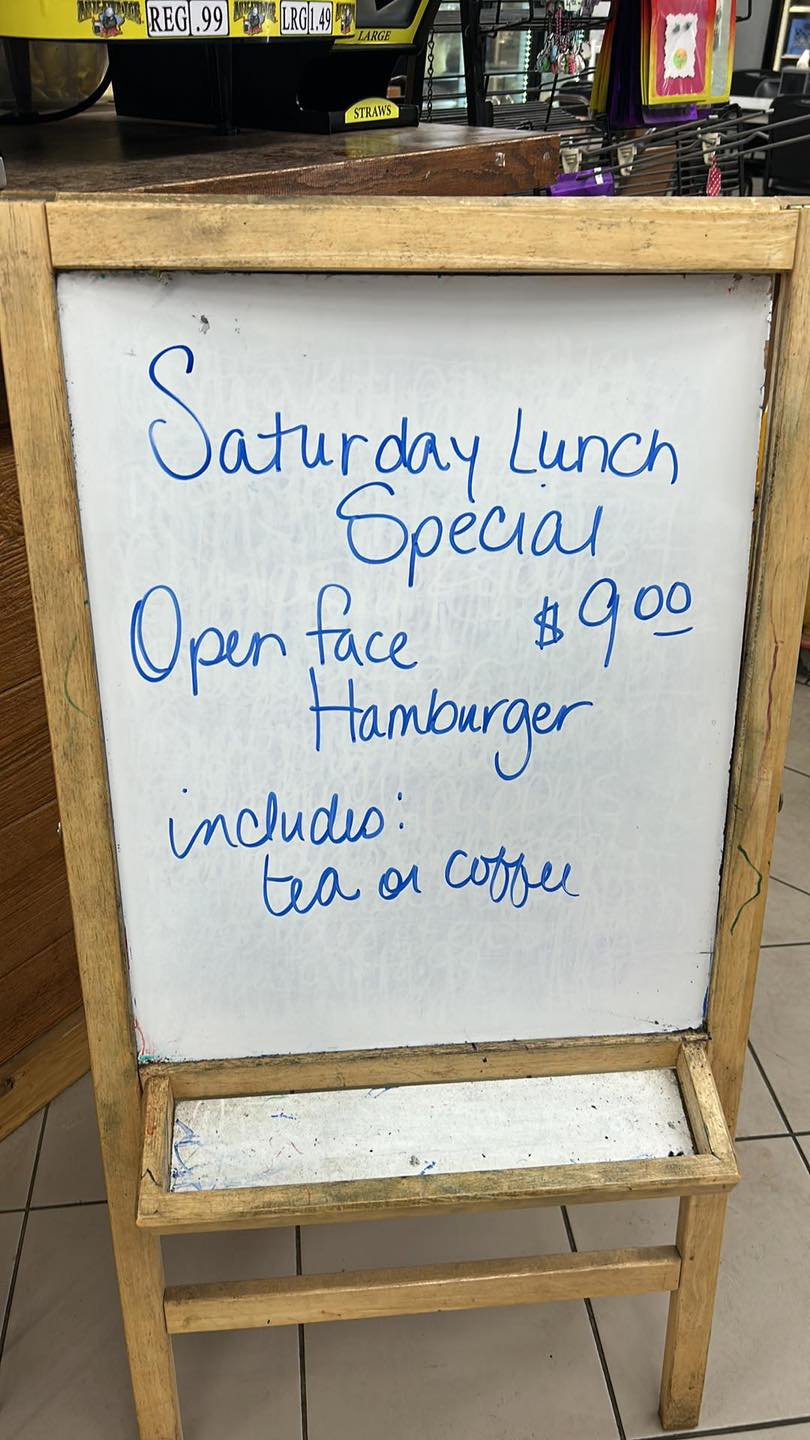 REG .99
LRG 1.49
LARGE
STRAWS
Saturday Lunch
Special
Open face $9.00
Hamburger
includes:
tea or coffee